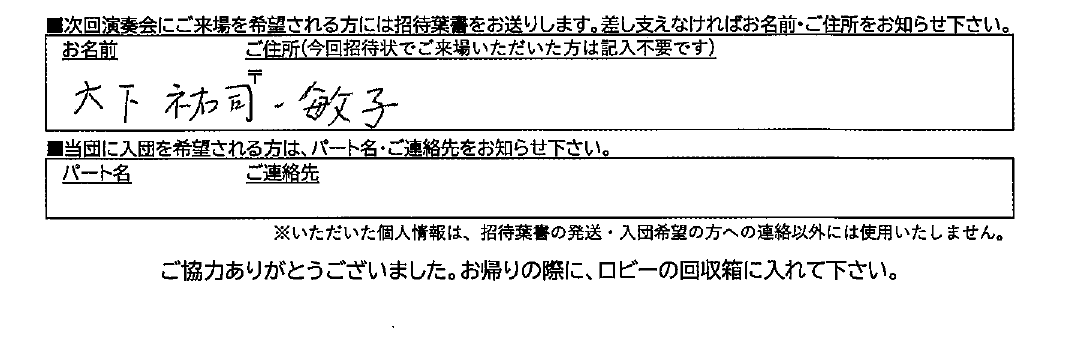 ■次回演奏会にご来場を希望される方には招待葉書をお送りします。差し支えなければお名前・ご住所をお知らせ下さい。
お名前 ご住所(今回招待状でご来場いただいた方は記入不要です)
〒
大下 祐司・敏子
■当団に入団を希望される方は、パート名・ご連絡先をお知らせ下さい。
パート名 ご連絡先
※いただいた個人情報は、招待葉書の発送・入団希望の方への連絡以外には使用いたしません。
ご協力ありがとうございました。お帰りの際に、ロビーの回収箱に入れて下さい。